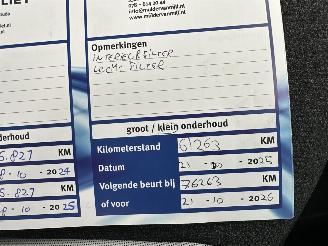 LIET
078 - 614 20 44
info@muldervanmijl.nl
www.muldervanmijl.nl
Opmerkingen
INTERIEURFILTER
LUCHTFILTER
groot / klein onderhoud
Kilometerstand 61263 KM
Datum 21 - 10 - 2025
Volgende beurt bij 76263 KM
of voor 21 - 10 - 2026
derhoud
5.827 KM
8 - 10 - 2024
.827 KM
8 - 10 - 2025